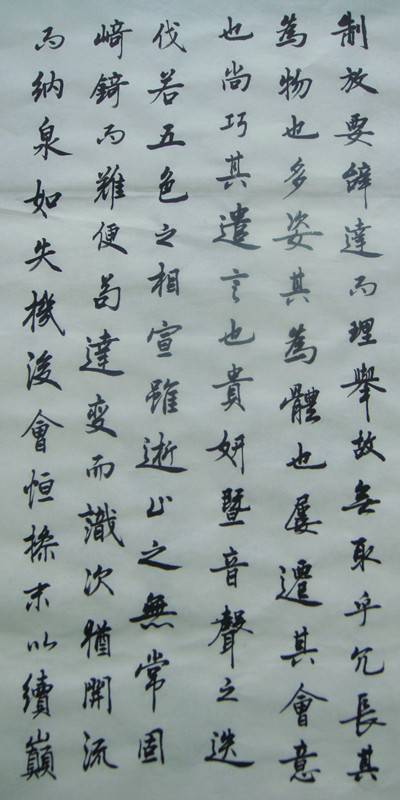 制放要辭達而理舉故無取乎冗長其
為物也多姿其為體也屢遷其會意
也尚巧其遣言也貴妍暨音聲之迭
伐若五色之相宣雖逝止之無常固
崎錡而難便苟達變而識次猶開流
而納泉如失機後會恒操末以續巔